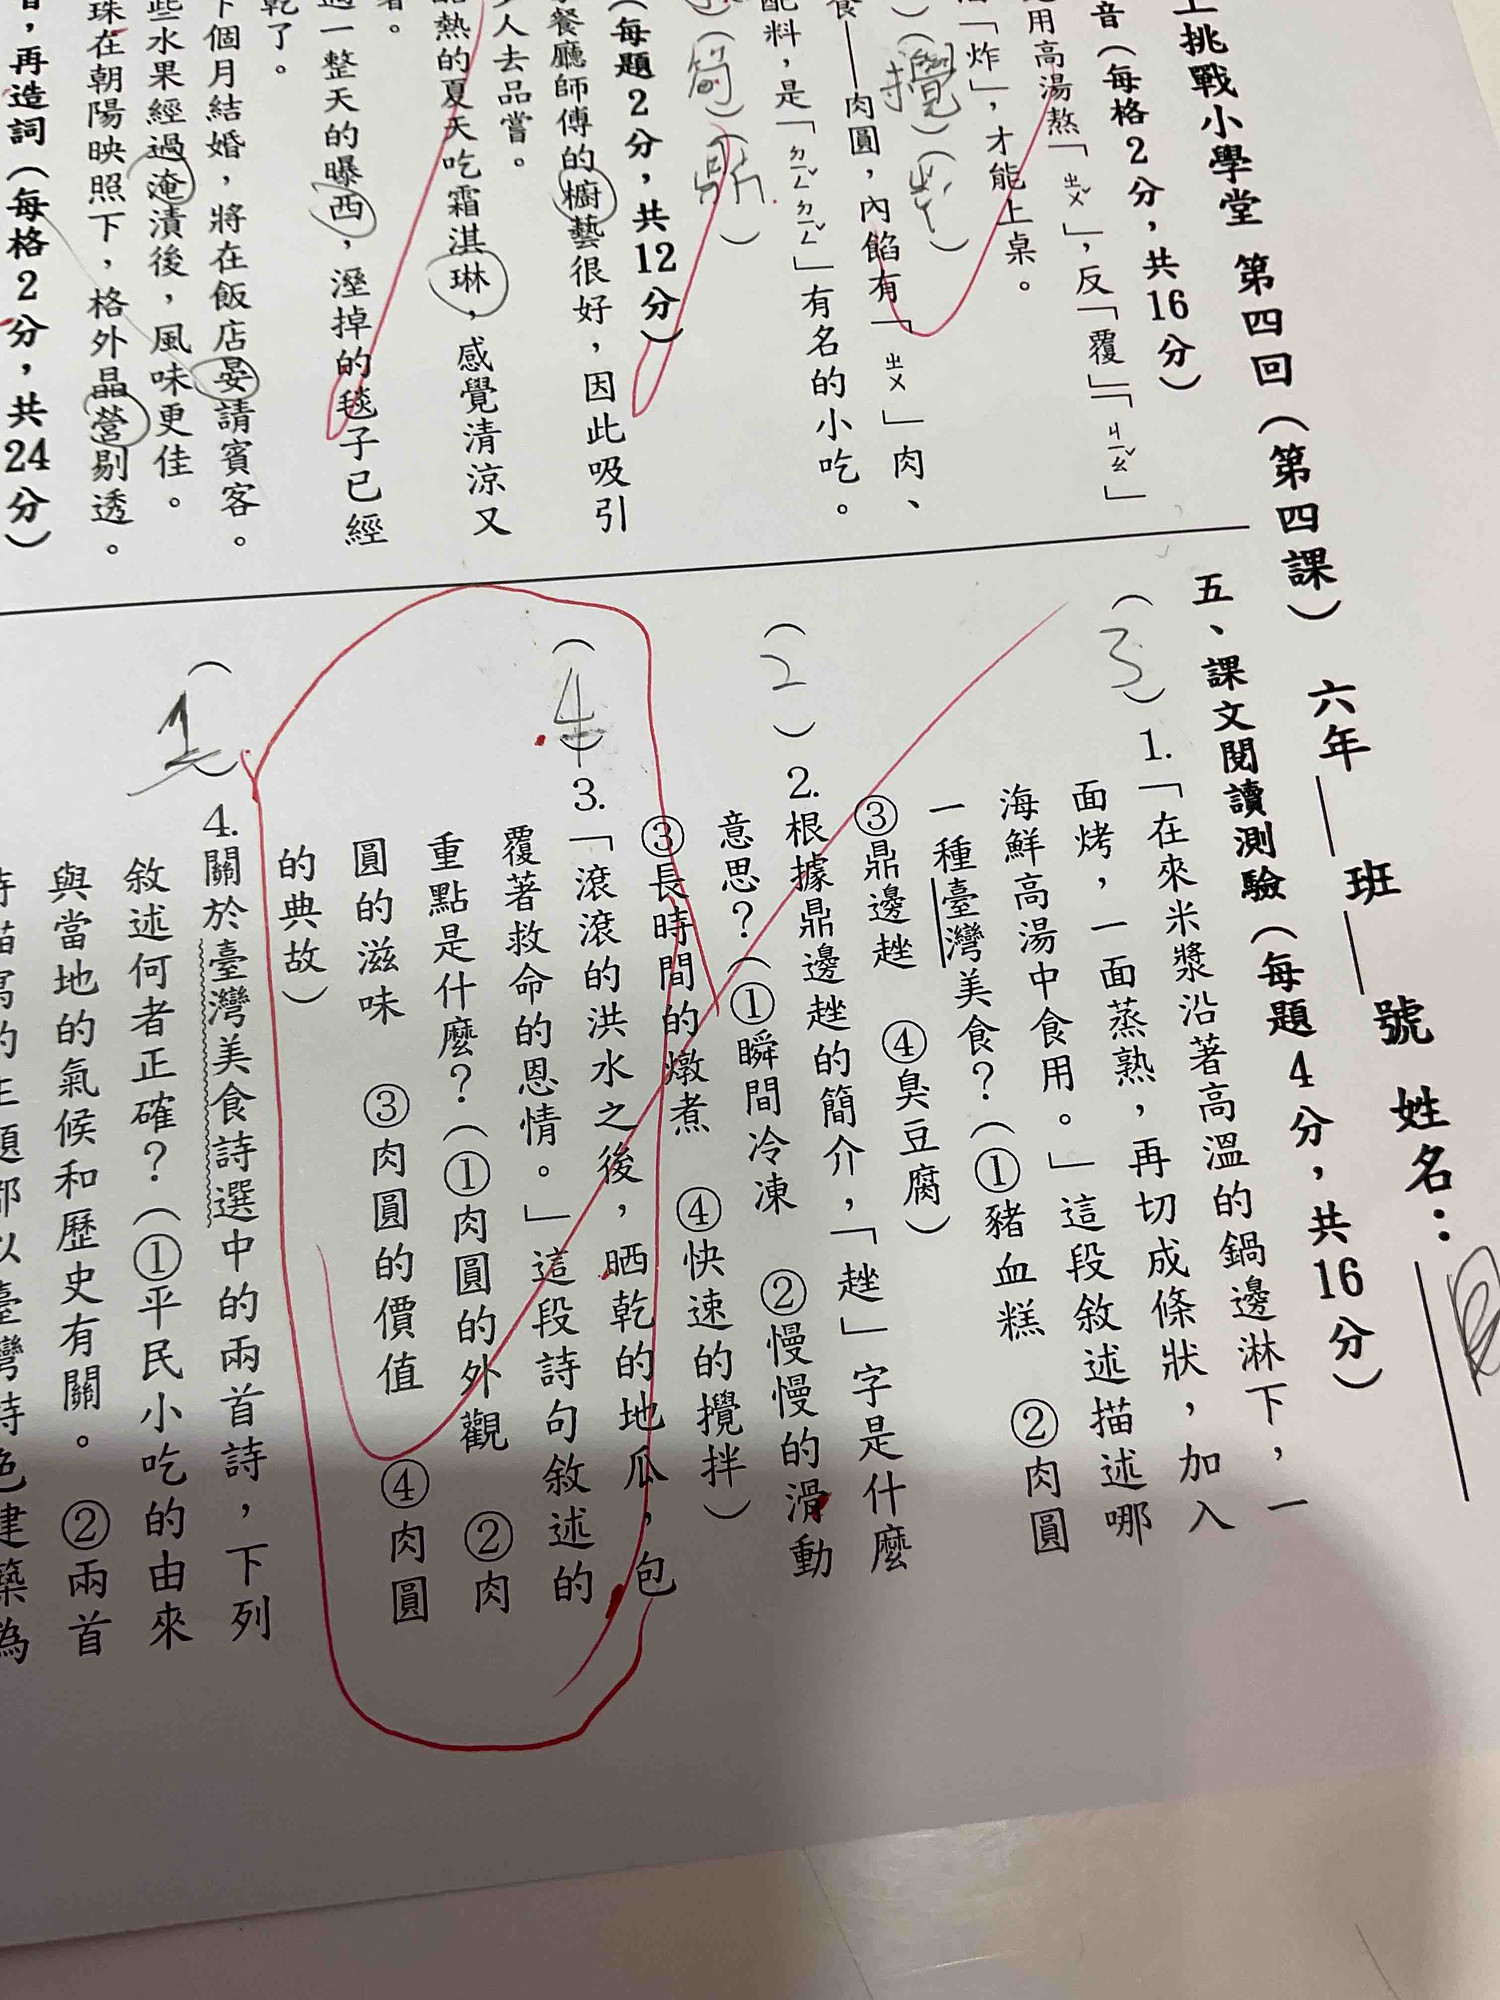 上挑戰小學堂 第四回(第四課) 六年 班 號 姓名:
音(每格2分,共16分)
用高湯熬「ㄓㄨˇ」,反「覆」「ㄐㄧㄠˇ」
「炸」,才能上桌。
(攪)
肉圓,內餡有「ㄓㄨ」肉、
配料,是「ㄉㄧㄥˇㄉㄧㄥˇ」有名的小吃。
(筍)(鼎)
(每題2分,共12分)
餐廳師傅的櫥藝很好,因此吸引
人去品嘗。
熱的夏天吃霜淇琳,感覺清涼又
過一整天的曝西,溼掉的毯子已經
乾了。
下個月結婚,將在飯店晏請賓客。
些水果經過淹漬後,風味更佳。
珠在朝陽映照下,格外晶營剔透。
,再造詞(每格2分,共24分)
五、課文閱讀測驗(每題4分,共16分)
(3)1.「在來米漿沿著高溫的鍋邊淋下,一
面烤,一面蒸熟,再切成條狀,加入
海鮮高湯中食用。」這段敘述描述哪
一種臺灣美食?(①豬血糕 ②肉圓
③鼎邊趖 ④臭豆腐)
(2)2.根據鼎邊趖的簡介,「趖」字是什麼
意思?(①瞬間冷凍 ②慢慢的滑動
③長時間的燉煮 ④快速的攪拌)
(4)3.「滾滾的洪水之後,晒乾的地瓜,包
覆著救命的恩情。」這段詩句敘述的
重點是什麼?(①肉圓的外觀 ②肉
圓的滋味 ③肉圓的價值 ④肉圓
的典故)
(1)4.關於臺灣美食詩選中的兩首詩,下列
敘述何者正確?(①平民小吃的由來
與當地的氣候和歷史有關。 ②兩首
詩描寫的主題都以臺灣特色建築為